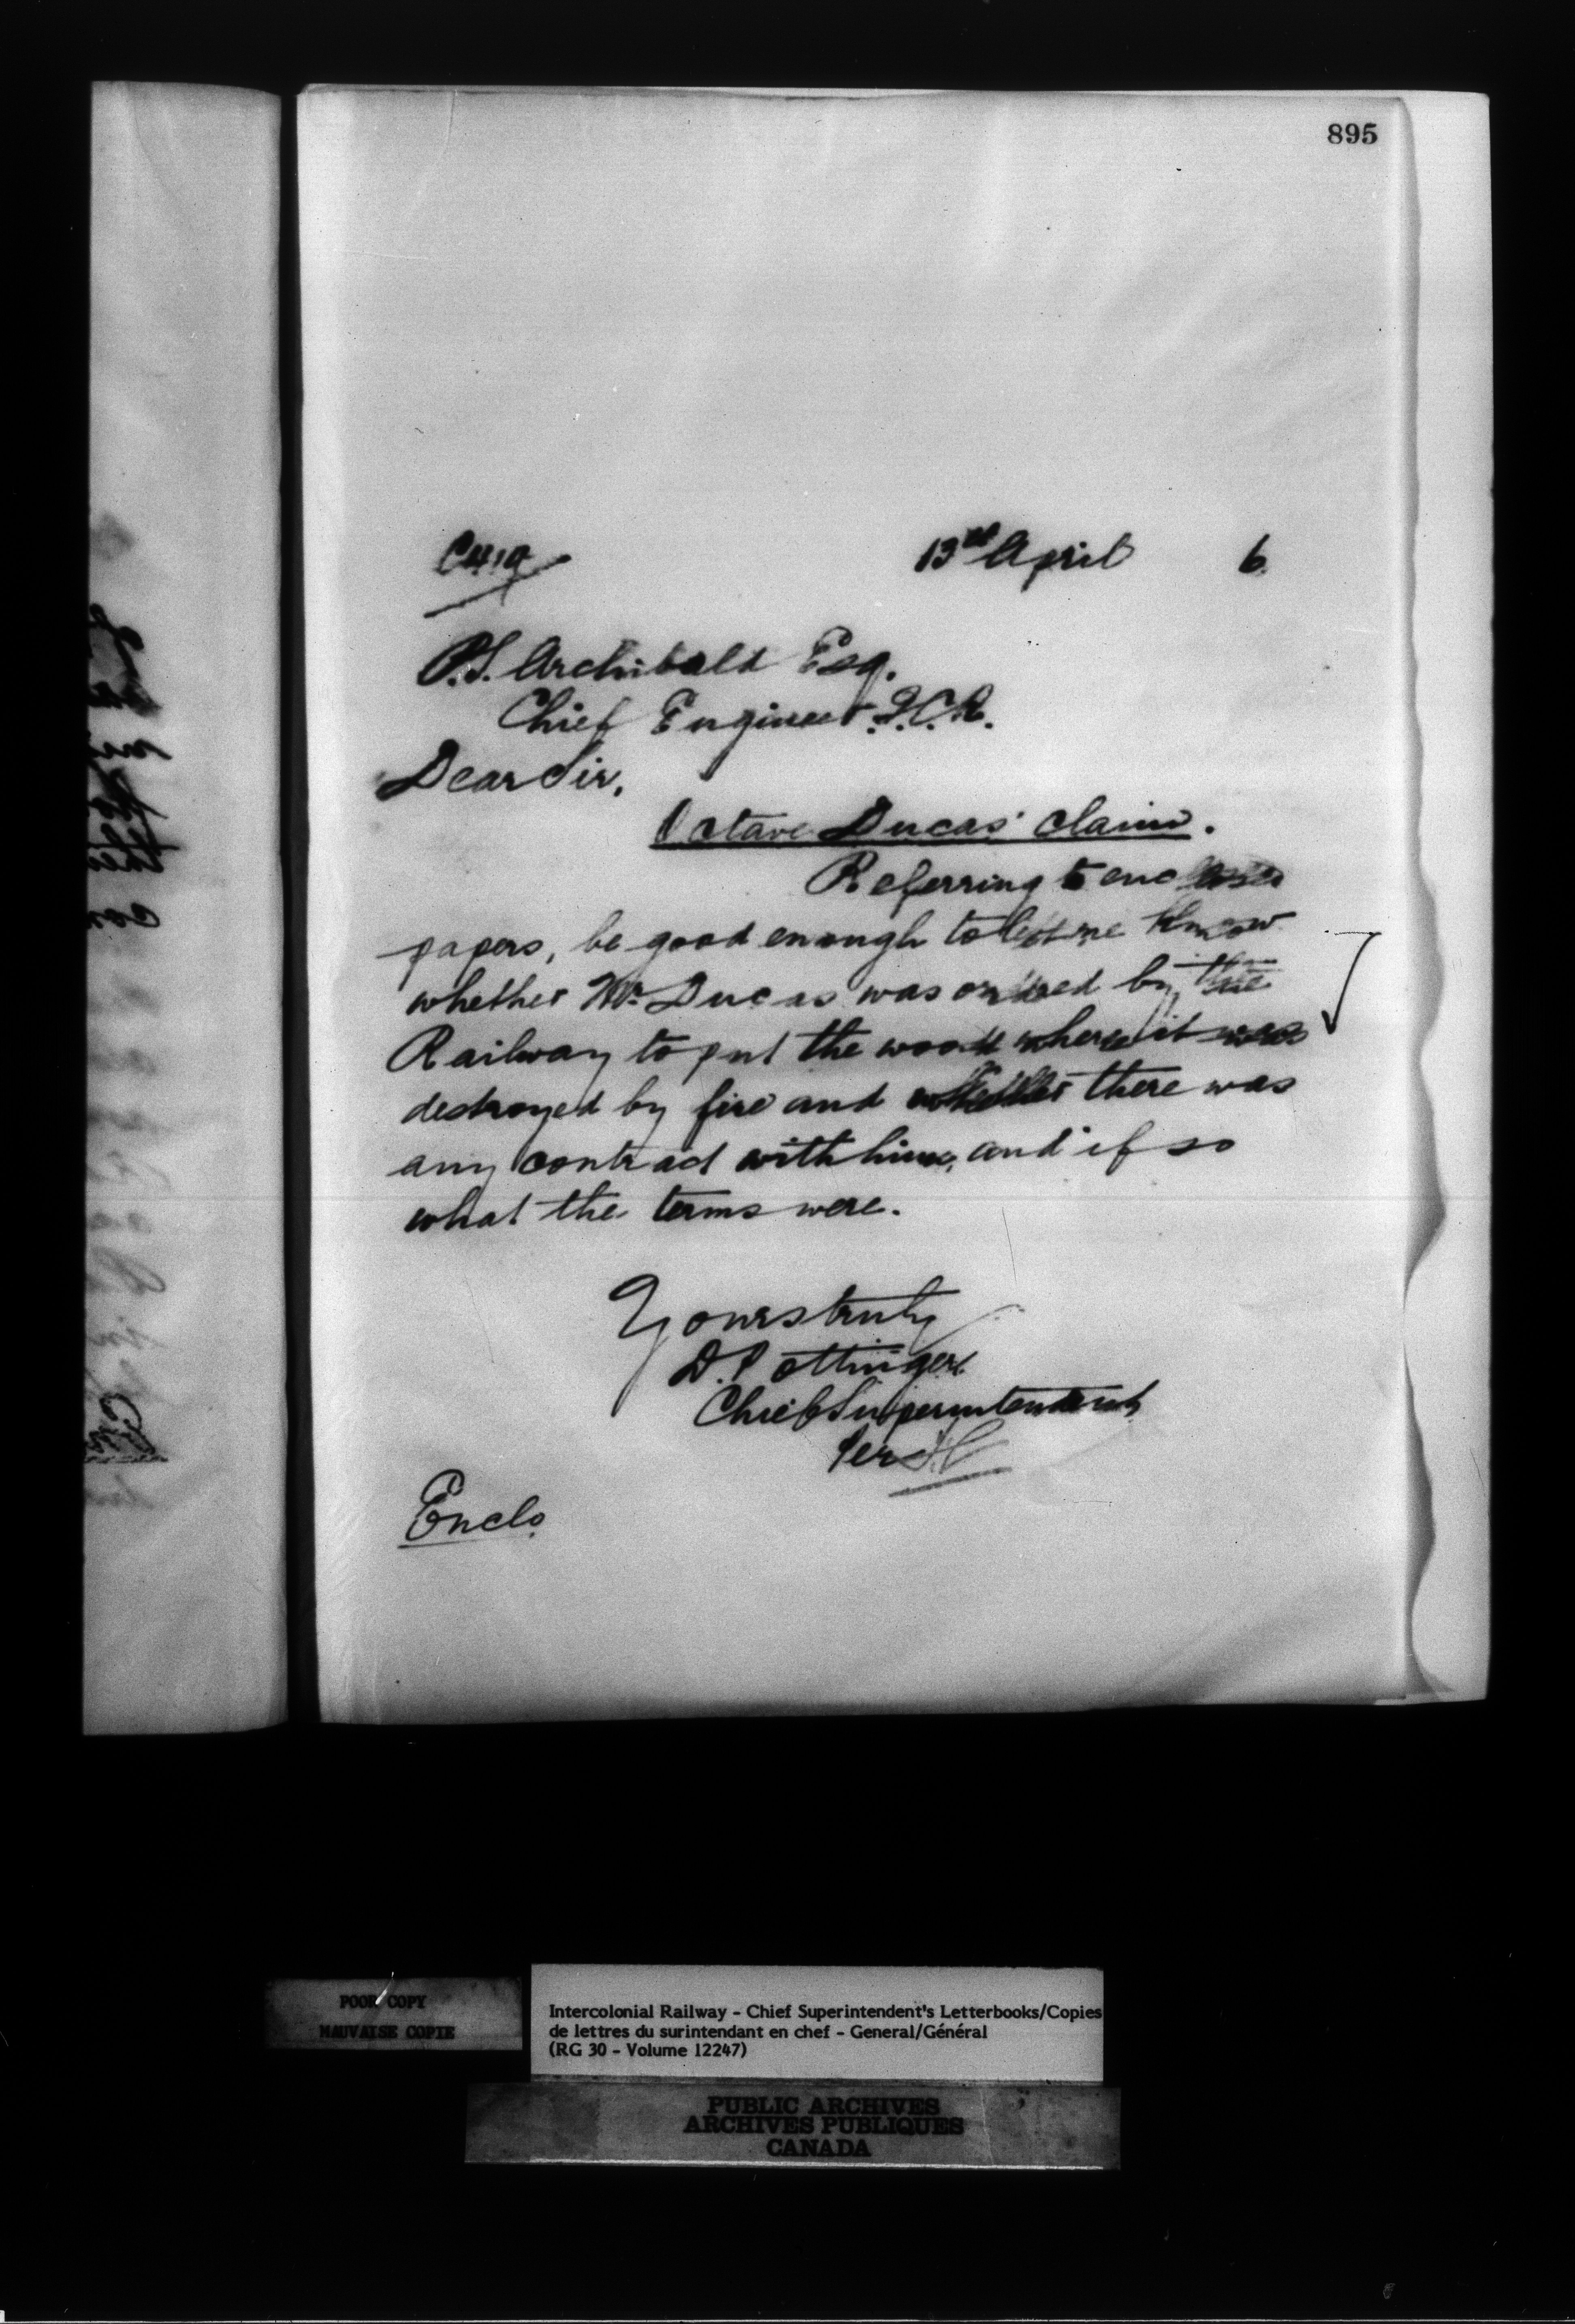 895
13th April 6.
P.S. Archibald Esq.
Chief Engineer I.C.R.
Dear Sir,
Octave Ducas' claim.
Referring to enclosed
papers, be good enough to let me know
whether Mr. Ducas was ordered by the
Railway to put the wood where it was
destroyed by fire and whether there was
any contract with him, and if so
what the terms were.
Yours truly
D. Pottinger
Chief Superintendent
Per
Enclo.
POOR COPY
MAUVAISE COPIE
Intercolonial Railway - Chief Superintendent's Letterbooks/Copies
de lettres du surintendant en chef - General/Général
(RG 30 - Volume 12247)
PUBLIC ARCHIVES
ARCHIVES PUBLIQUES
CANADA